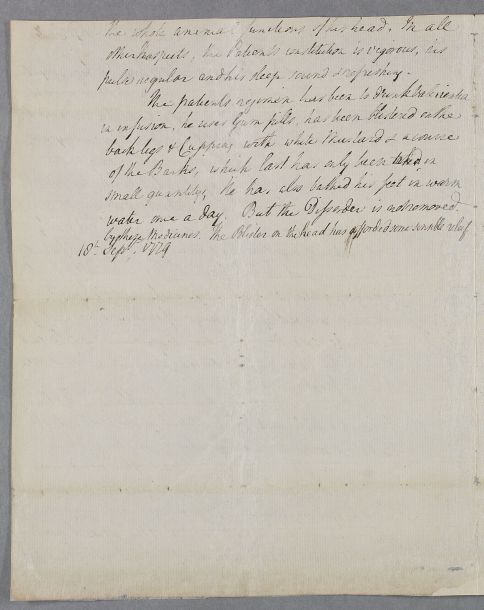 the whole animal functions of his head. In all
other respects, the Patients constitution is vigorous, his
pulse regular and his sleep sound & refreshing.
The patients regimen has been to drink
in infusion, he uses Gum pills, has been blistered on the
back legs & Cupping with white Mustard & a course
of the Barks, which last has only been taken in
small quantity; He has also bathed his feet in warm
water once a day. But the Disorder is not removed
by these Medicines. The Blister on the head has afforded some sensible relief
18th Septr. 1779